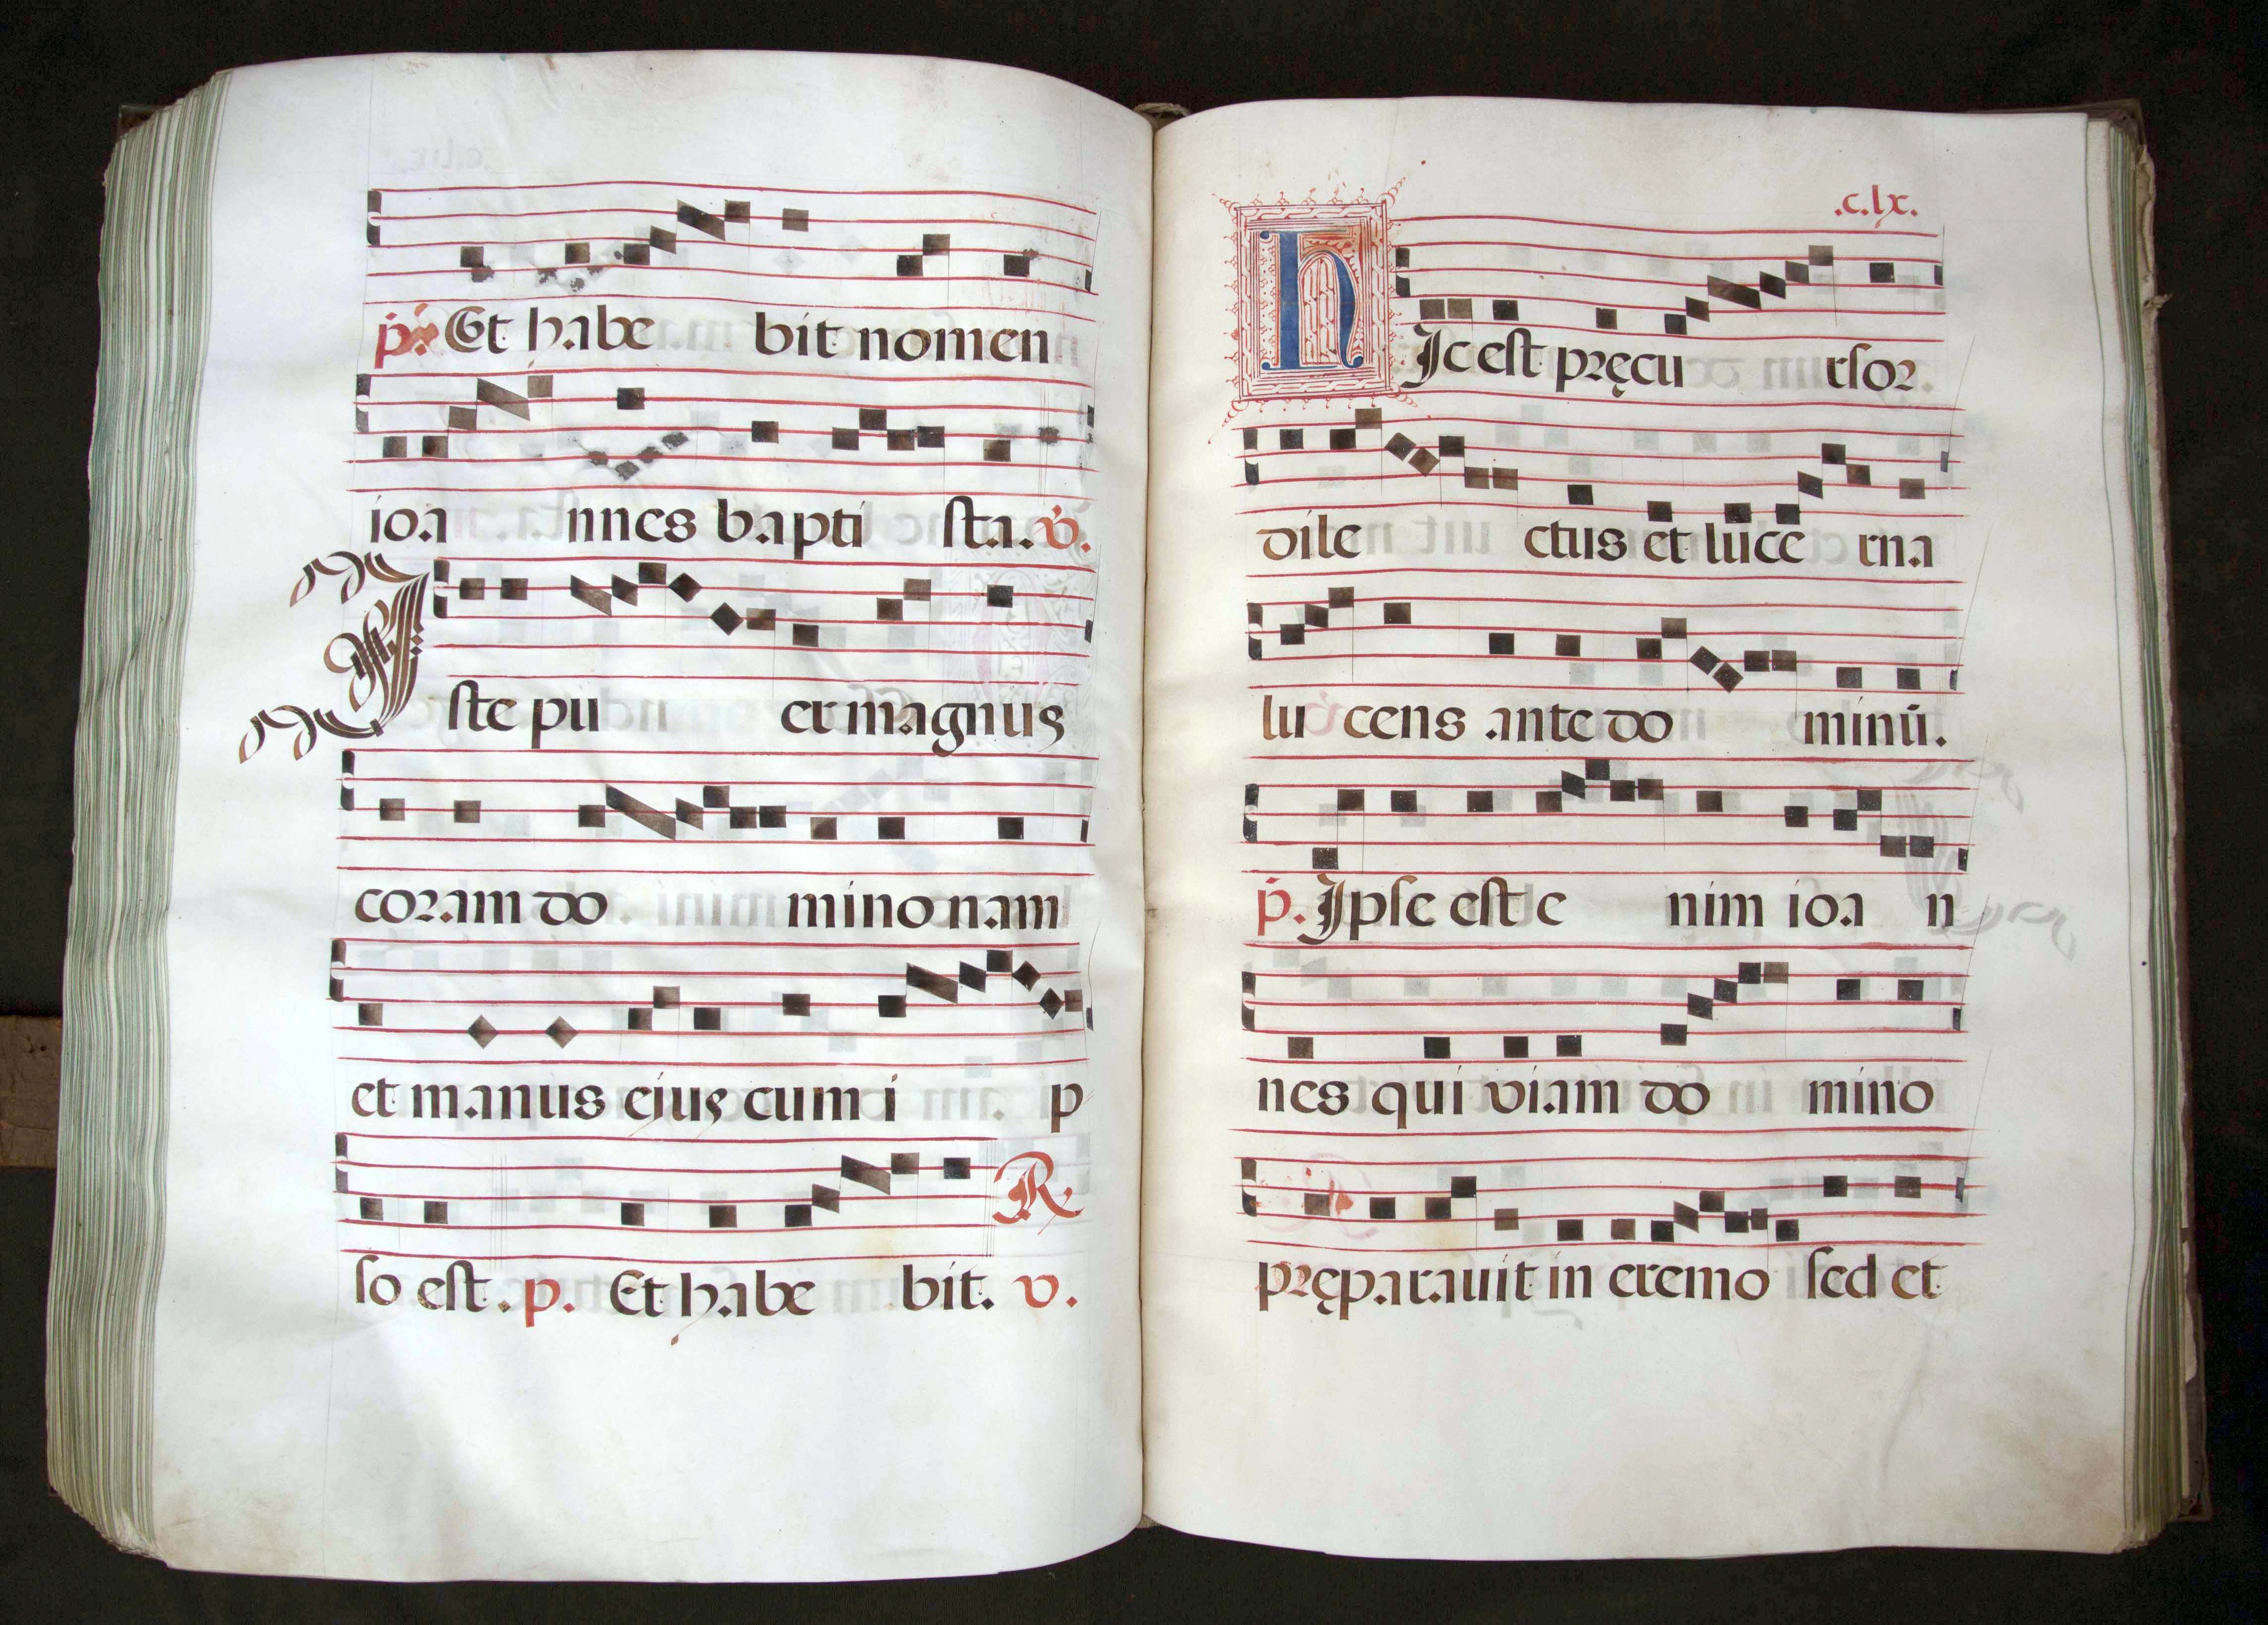 p. Et habe bit nomen
ioa nnes bapti sta. v.
Iste pu er magnus
coram do mino nam
et manus ejus cum i p
so est. p. Et habe bit. v.
.c.lx.
hIc est pręcu rsor
dile ctus et luce rna
lu cens ante do minū.
p. Ipse est e nim ioa n
nes qui viam do mino
pręparauit in eremo sed et